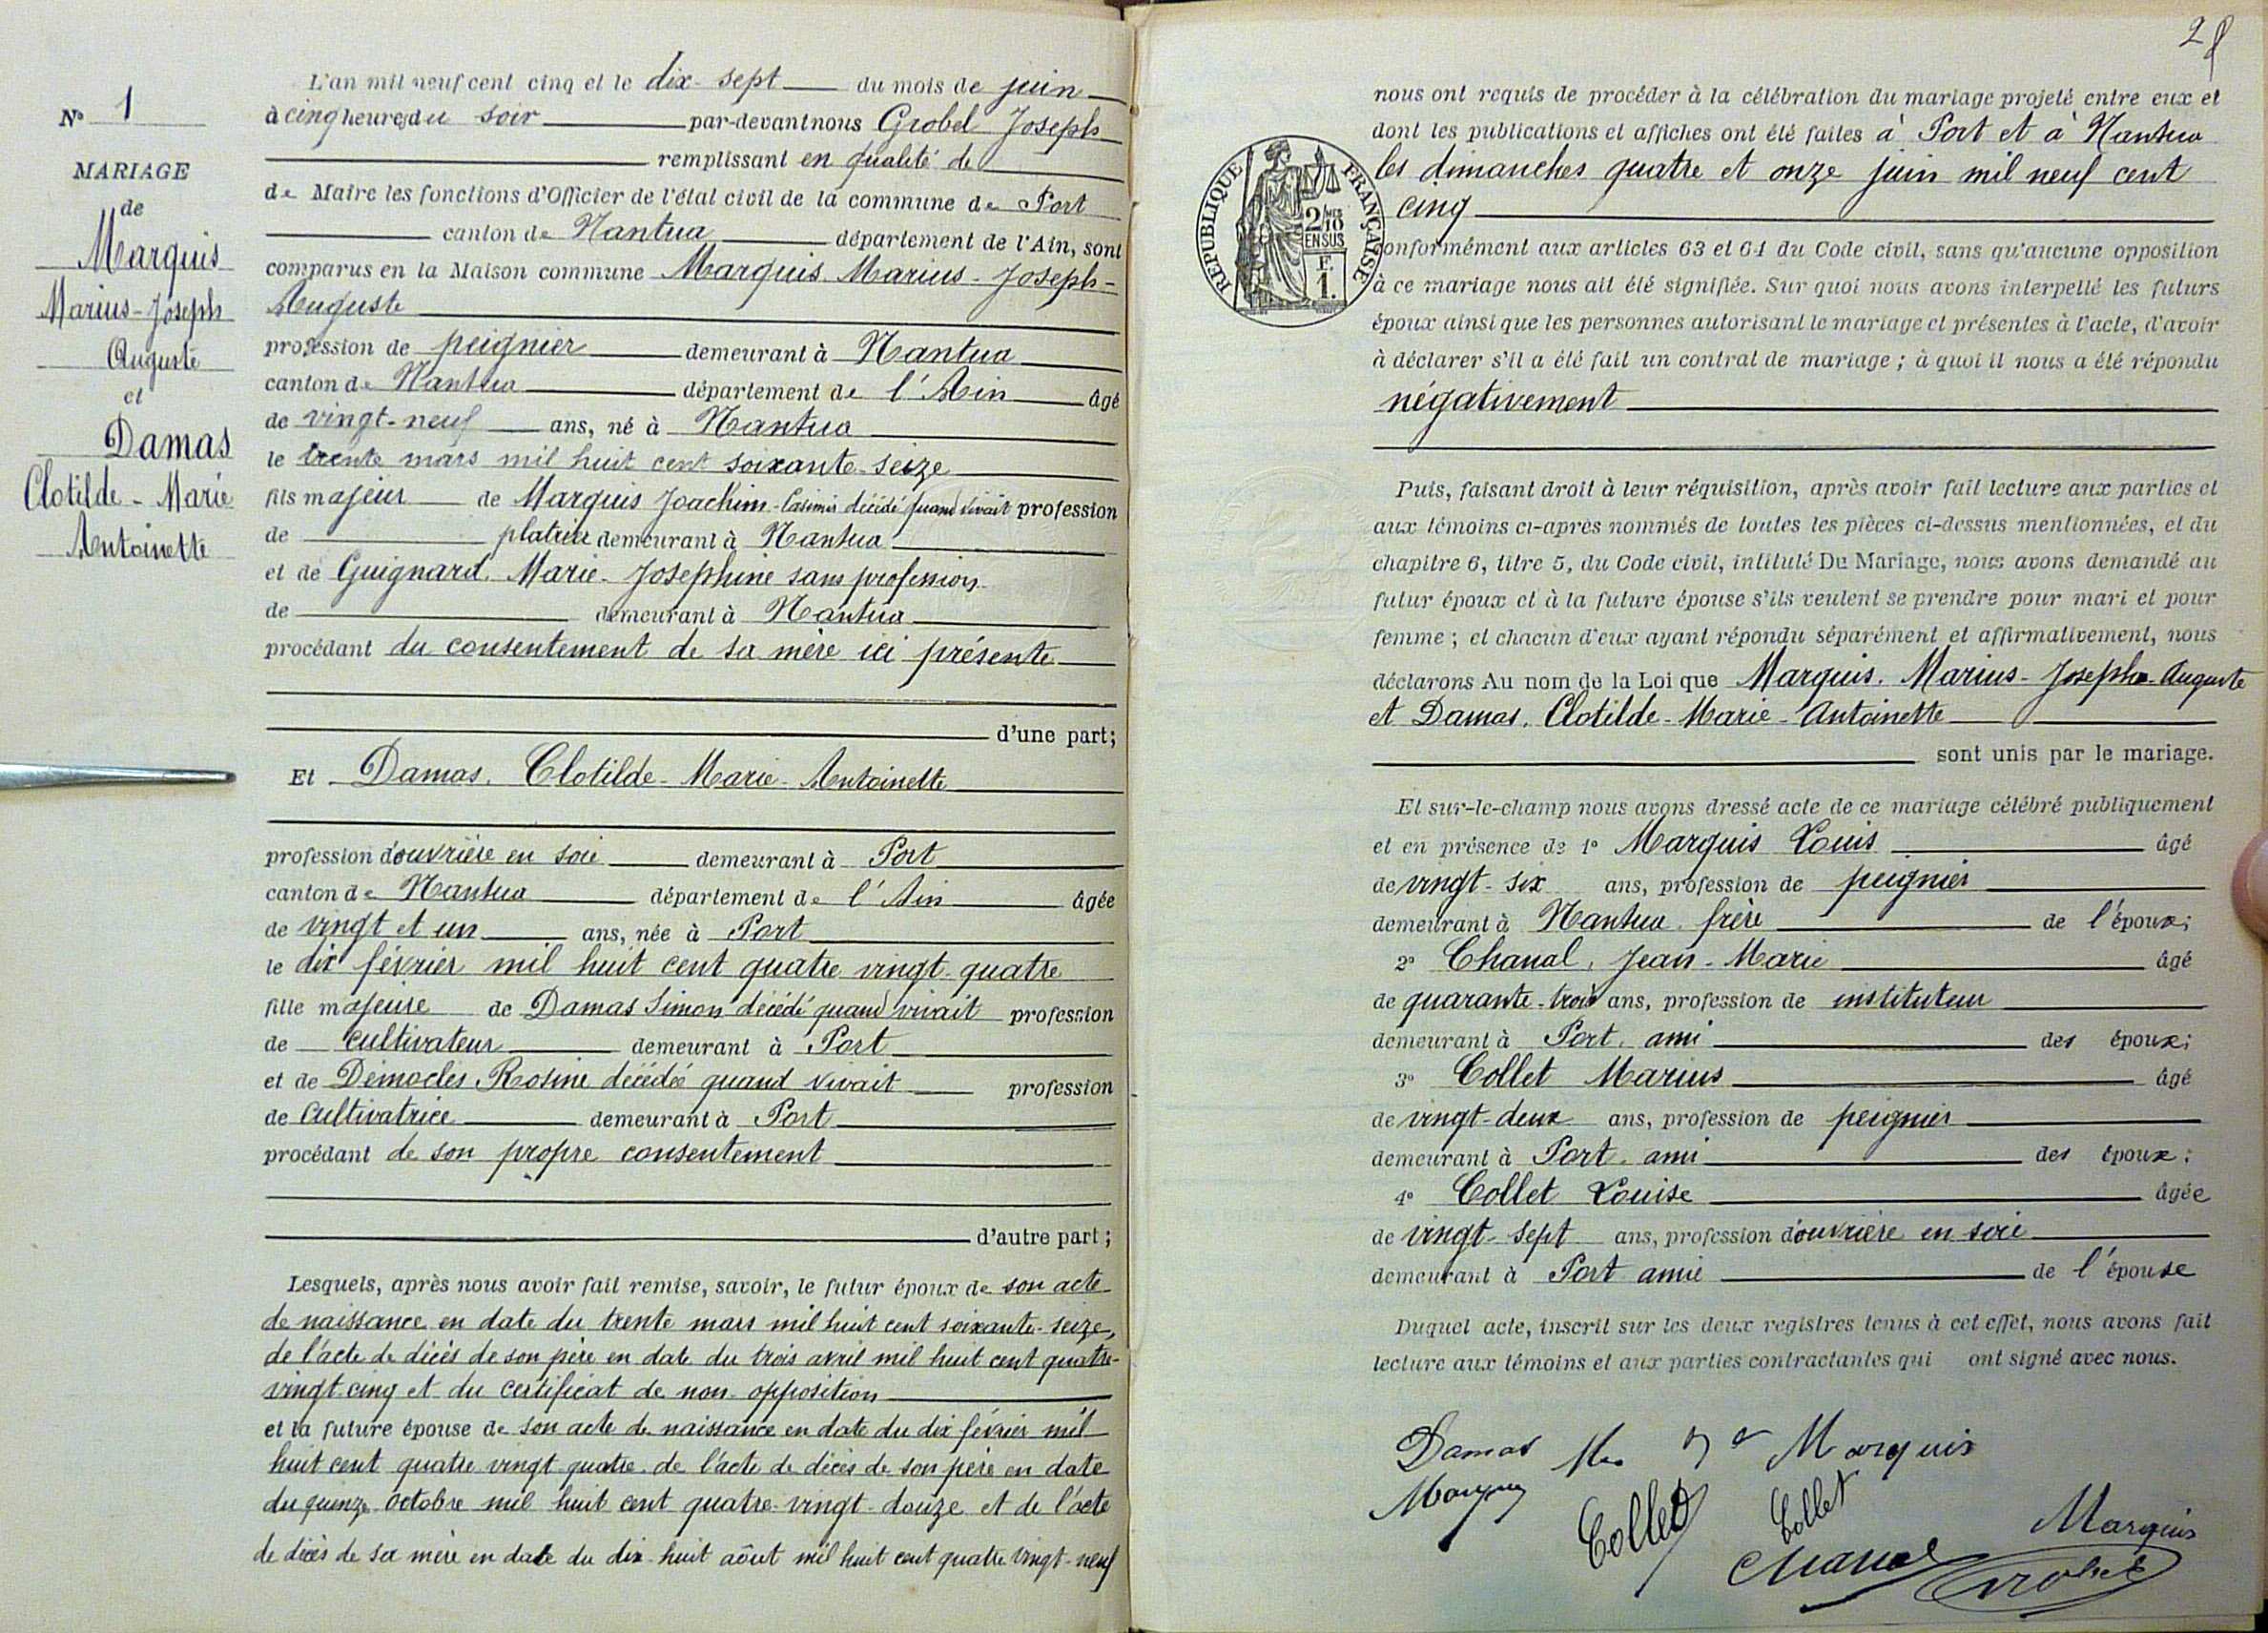 N° 1
MARIAGE
de
Marquis
Marius-Joseph
Auguste
et
Damas
Clotilde-Marie
Antoinette
L'an mil neuf cent cinq et le dix-sept du mois de juin
à cinq heures du soir par-devant nous Grobel Joseph
remplissant en qualité de
de Maire les fonctions d'Officier de l'état civil de la commune de Port
canton de Nantua département de l'Ain, sont
comparus en la Maison commune Marquis Marius-Joseph-
Auguste
profession de peignier demeurant à Nantua
canton de Nantua département de l'Ain âgé
de vingt-neuf ans, né à Nantua
le trente mars mil huit cent soixante-seize
fils majeur de Marquis Joachim-Casimir décédé quand vivait profession
de platrier demeurant à Nantua
et de Guignard, Marie-Joséphine sans profession
de demeurant à Nantua
procédant du consentement de sa mère ici présente
d'une part;
Et Damas, Clotilde-Marie-Antoinette
profession d'ouvrière en soie demeurant à Port
canton de Nantua département de l'Ain âgée
de vingt et un ans, née à Port
le dix février mil huit cent quatre vingt-quatre
fille majeure de Damas Simon décédé quand vivait profession
de cultivateur demeurant à Port
et de Démocles Rosine décédée quand vivait profession
de cultivatrice demeurant à Port
procédant de son propre consentement
d'autre part;
Lesquels, après nous avoir fait remise, savoir, le futur époux de son acte
de naissance en date du trente mars mil huit cent soixante-seize,
de l'acte de décès de son père en date du trois avril mil huit cent quatre-
vingt-cinq et du certificat de non-opposition
et la future épouse de son acte de naissance en date du dix février mil
huit cent quatre vingt quatre, de l'acte de décès de son père en date
du quinze octobre mil huit cent quatre-vingt-douze et de l'acte
de décès de sa mère en date du dix-huit août mil huit cent quatre vingt-neuf
nous ont requis de procéder à la célébration du mariage projeté entre eux et
dont les publications et affiches ont été faites à Port et à Nantua
les dimanches quatre et onze juin mil neuf cent
cinq
RÉPUBLIQUE FRANÇAISE
2/10 MES
EN SUS
F.
1.
conformément aux articles 63 et 64 du Code civil, sans qu'aucune opposition
à ce mariage nous ait été signifiée. Sur quoi nous avons interpellé les futurs
époux ainsi que les personnes autorisant le mariage et présentes à l'acte, d'avoir
à déclarer s'il a été fait un contrat de mariage; à quoi il nous a été répondu
négativement
Puis, faisant droit à leur réquisition, après avoir fait lecture aux parties et
aux témoins ci-après nommés de toutes les pièces ci-dessus mentionnées, et du
chapitre 6, titre 5, du Code civil, intitulé Du Mariage, nous avons demandé au
futur époux et à la future épouse s'ils veulent se prendre pour mari et pour
femme; et chacun d'eux ayant répondu séparément et affirmativement, nous
déclarons Au nom de la Loi que Marquis, Marius-Joseph-Auguste
et Damas, Clotilde-Marie-Antoinette
sont unis par le mariage.
Et sur-le-champ nous avons dressé acte de ce mariage célébré publiquement
et en présence de 1° Marquis Louis âgé
de vingt-six ans, profession de peignier
demeurant à Nantua, frère de l'époux;
2° Chanal, Jean-Marie âgé
de quarante-trois ans, profession de instituteur
demeurant à Port, ami des époux;
3° Collet Marius âgé
de vingt-deux ans, profession de peignier
demeurant à Port, ami des époux;
4° Collet Louise âgée
de vingt-sept ans, profession d'ouvrière en soie
demeurant à Port amie de l'épouse
Duquel acte, inscrit sur les deux registres tenus à cet effet, nous avons fait
lecture aux témoins et aux parties contractantes qui ont signé avec nous.
Damas Marquis
Collet Collet Marquis
Chanal Grobel